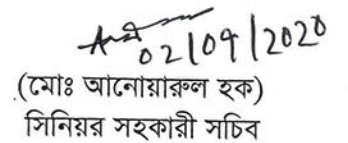 02/09/2020
(মোঃ আনোয়ারুল হক)
সিনিয়র সহকারী সচিব